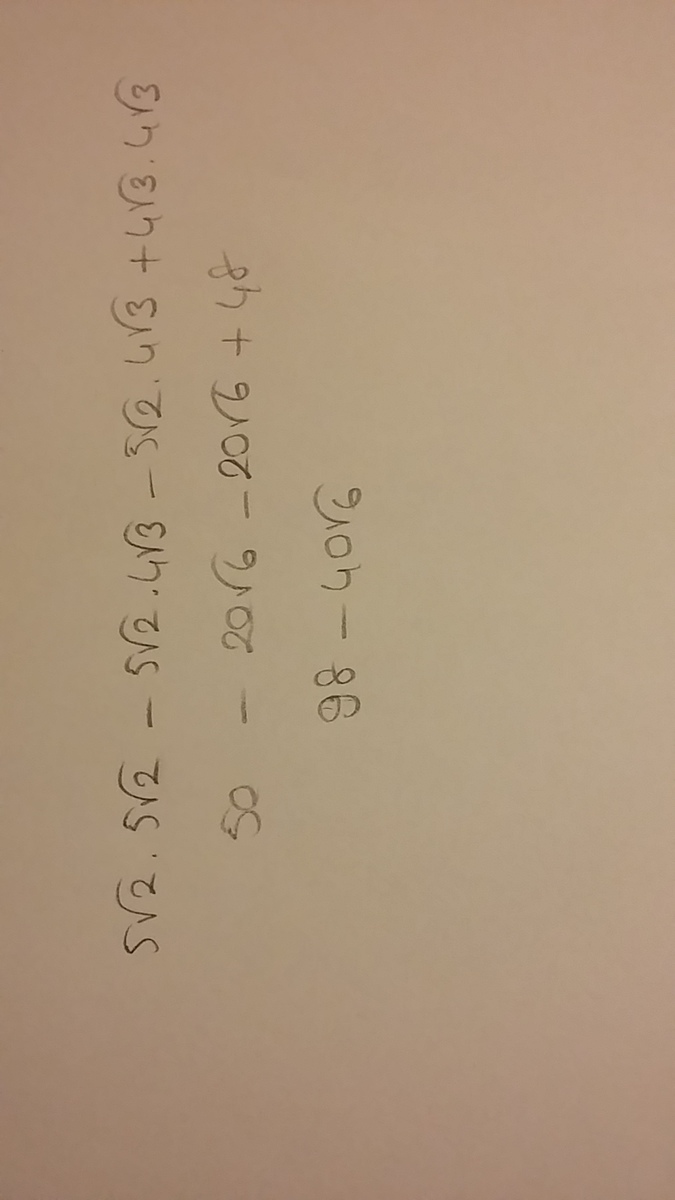 5√2 . 5√2 – 5√2 . 4√3 – 5√2 . 4√3 + 4√3 . 4√3
50 – 20√6 – 20√6 + 48
98 – 40√6